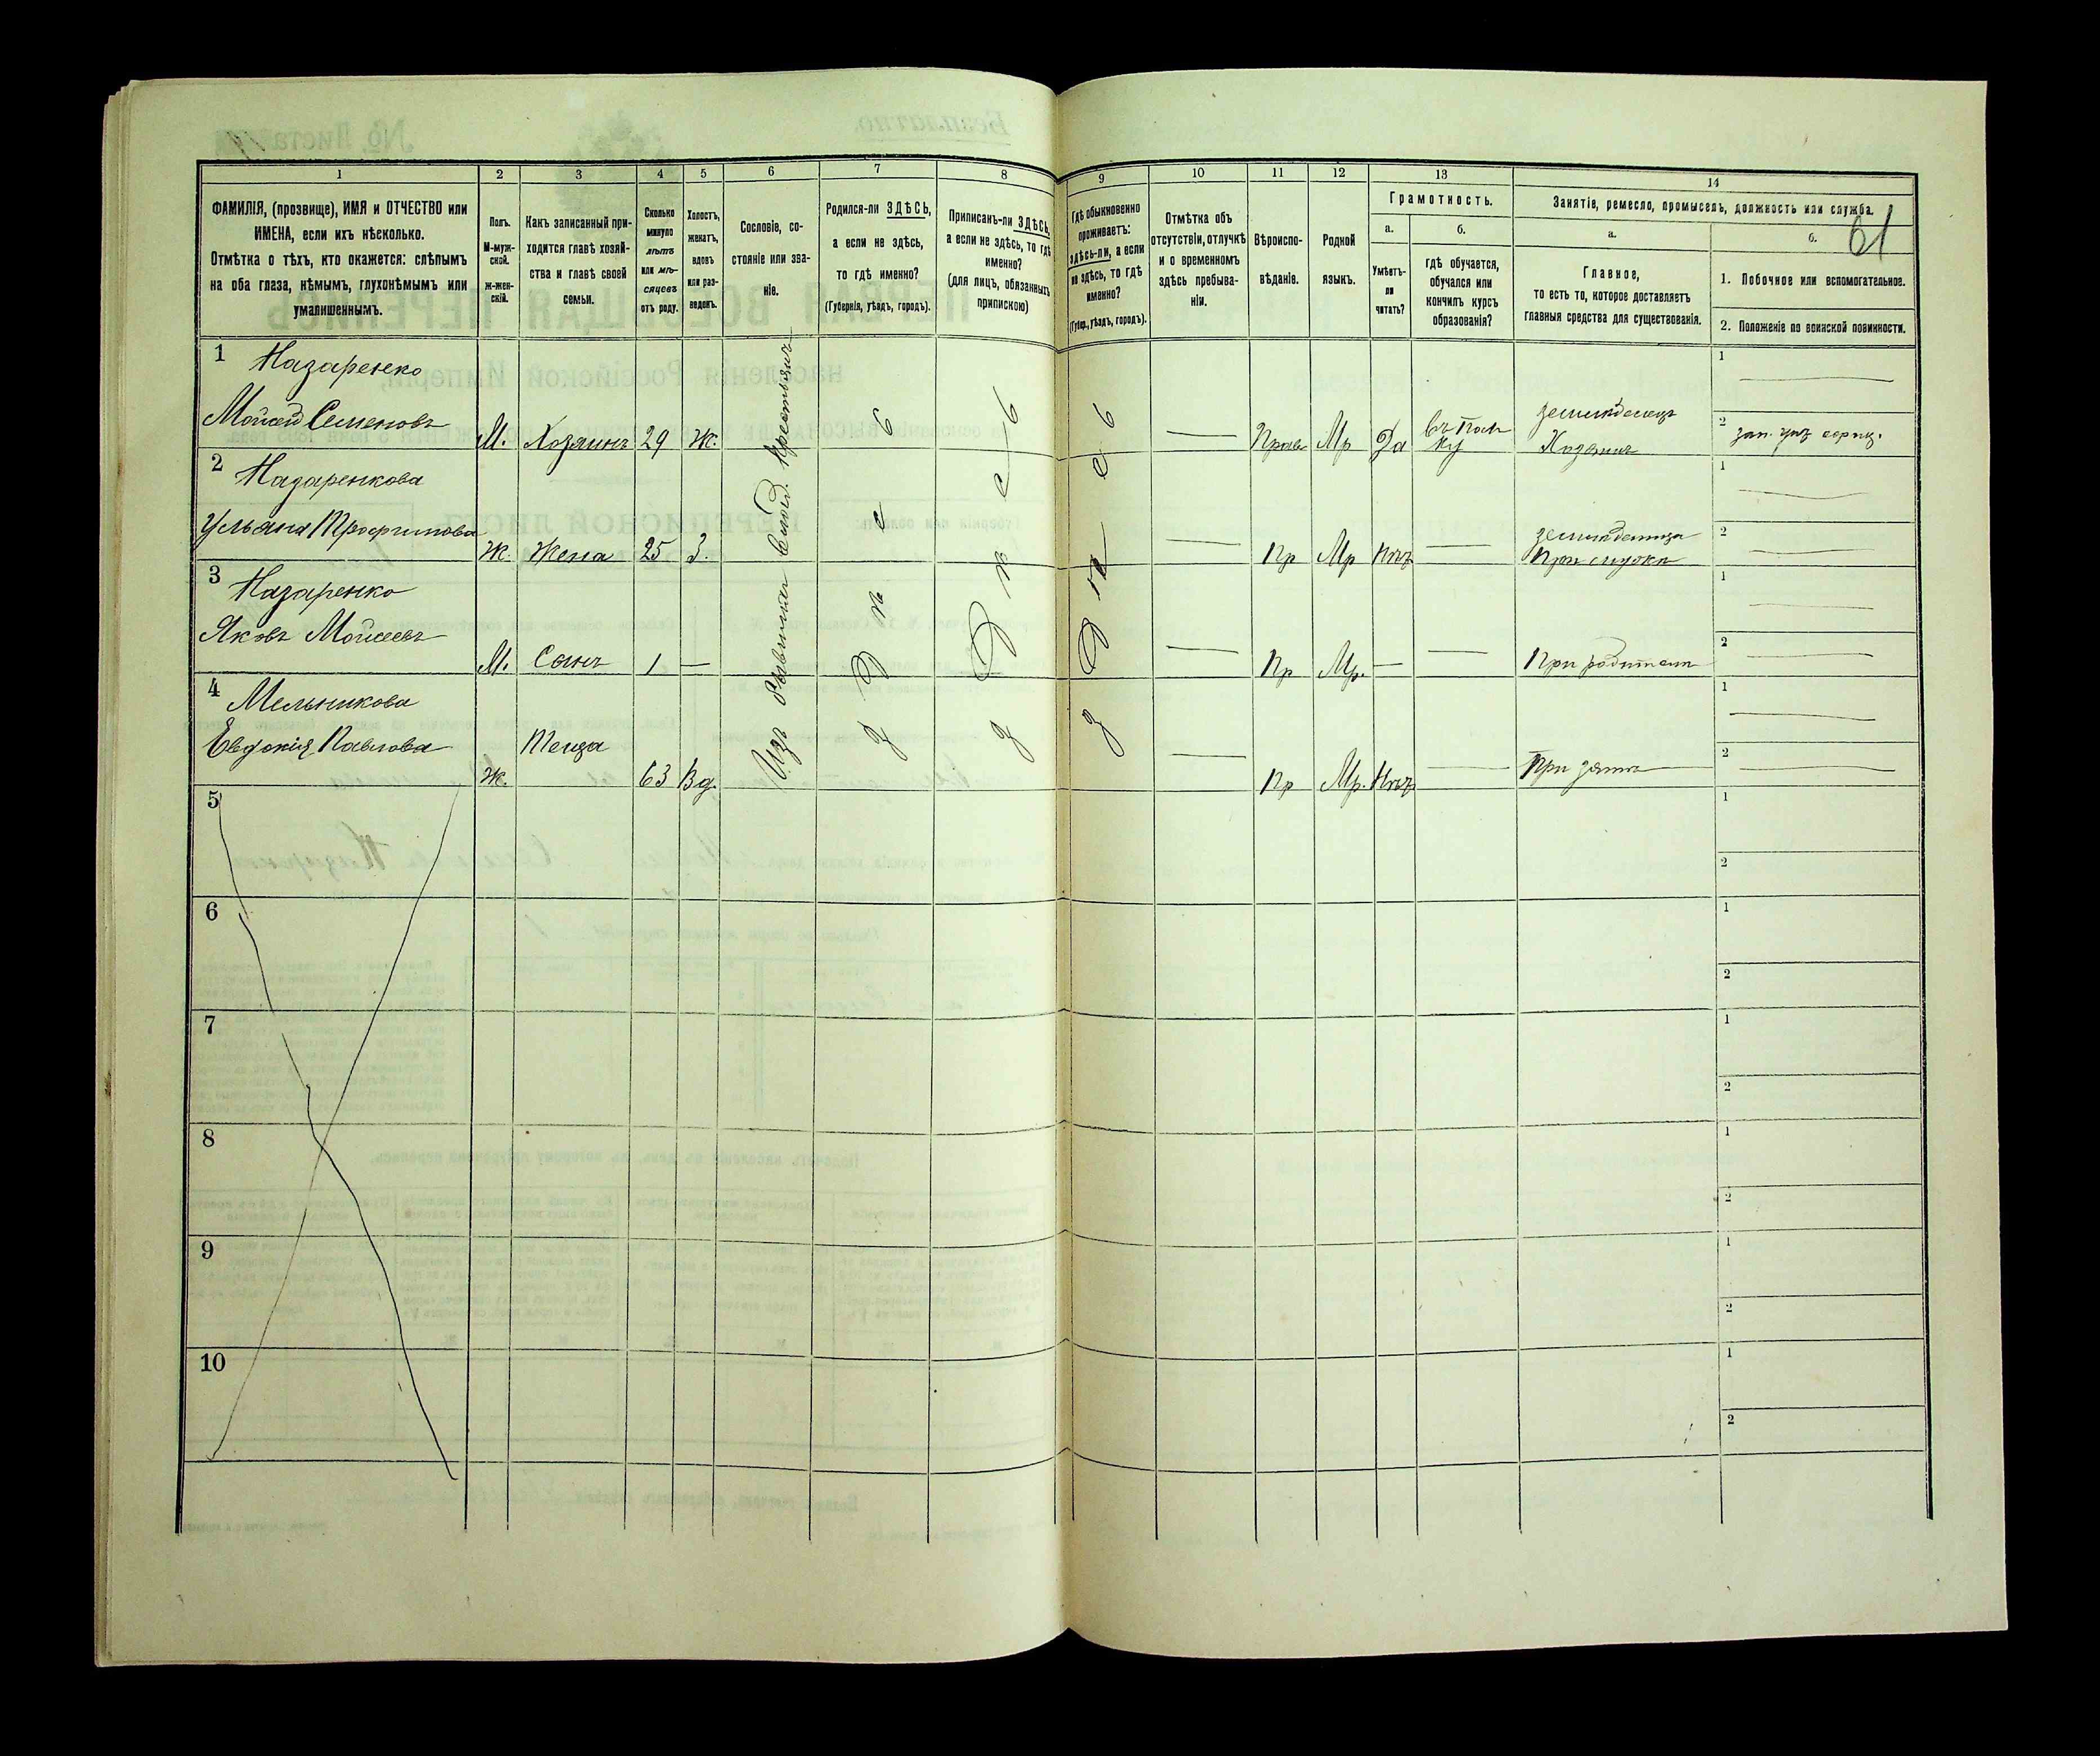 Безплатно.
№ Листа
61
1 2 3 4 5 6 7 8 9 10 11 12 13 14
ФАМИЛІЯ, (прозвище), ИМЯ и ОТЧЕСТВО или
ИМЕНА, если ихъ нѣсколько.
Отмѣтка о тѣхъ, кто окажется: слѣпымъ
на оба глаза, нѣмымъ, глухонѣмымъ или
умалишеннымъ.
Полъ.
М-муж-
ской.
Ж-жен-
скій.
Какъ записанный при-
ходится главѣ хозяй-
ства и главѣ своей
семьи.
Сколько
минуло
лѣтъ
или мѣ-
сяцевъ
отъ роду.
Холостъ,
женатъ,
вдовъ
или раз-
веденъ.
Сословіе, со-
стояніе или зва-
ніе.
Родился-ли ЗДѢСЬ,
а если не здѣсь,
то гдѣ именно?
(Губернія, уѣздъ, городъ).
Приписанъ-ли ЗДѢСЬ,
а если не здѣсь, то гдѣ
именно?
(для лицъ, обязанныхъ
припискою)
Гдѣ обыкновенно
проживаетъ:
здѣсь-ли, а если
не здѣсь, то гдѣ
именно?
(Губер., уѣздъ, городъ).
Отмѣтка объ
отсутствіи, отлучкѣ
и о временномъ
здѣсь пребыва-
ніи.
Вѣроиспо-
вѣданіе.
Родной
языкъ.
Грамотность.
а.
Умѣетъ-
ли
читать?
б.
гдѣ обучается,
обучался или
кончилъ курсъ
образованія?
Занятіе, ремесло, промыселъ, должность или служба.
а.
Главное,
то есть то, которое доставляетъ
главныя средства для существованія.
б.
1. Побочное или вспомогательное.
2. Положеніе по воинской повинности.
1 Назаренко
Моисей Семеновъ М. Хозяинъ 29 Ж. Прав Мр Да земледелецъ
Хозяинъ
1
2
2 Назаренкова
Ульяна Трофимова Ж. Жена 25 З. Пр Мр Нѣтъ
1
2
3 Назаренко
Яковъ Моисеевъ М. Сынъ 1 — Пр Мр. — При родителе
1
2
4 Мельникова
Евдокія Павлова Ж. Теща 63 Вд. Пр Мр. Нѣтъ При зяте
1
2
Крестьянъ
5
1
2
6
1
2
7
1
2
8
1
2
9
1
2
10
1
2